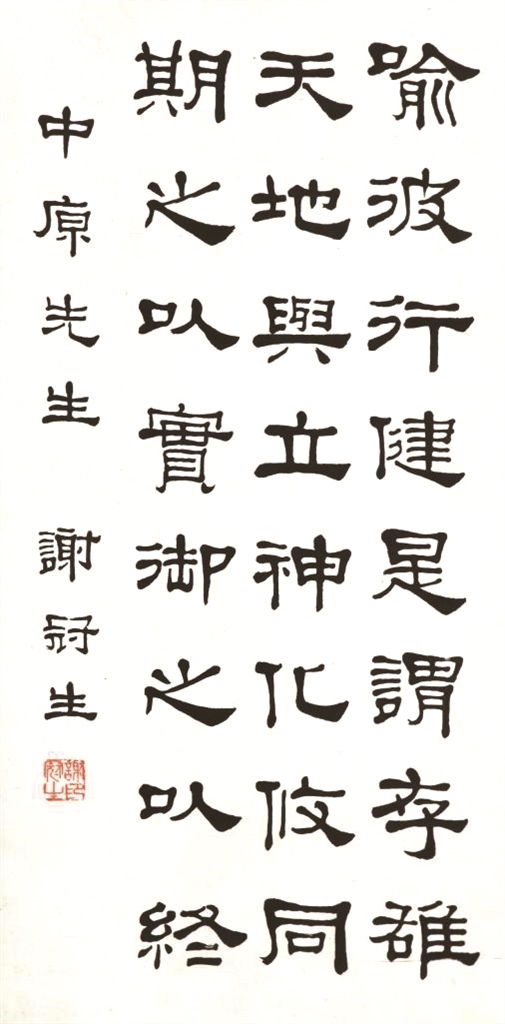 喻彼行健是謂存雄
天地與立神化攸同
期之以實御之以終
中原先生 謝冠生
謝印冠生